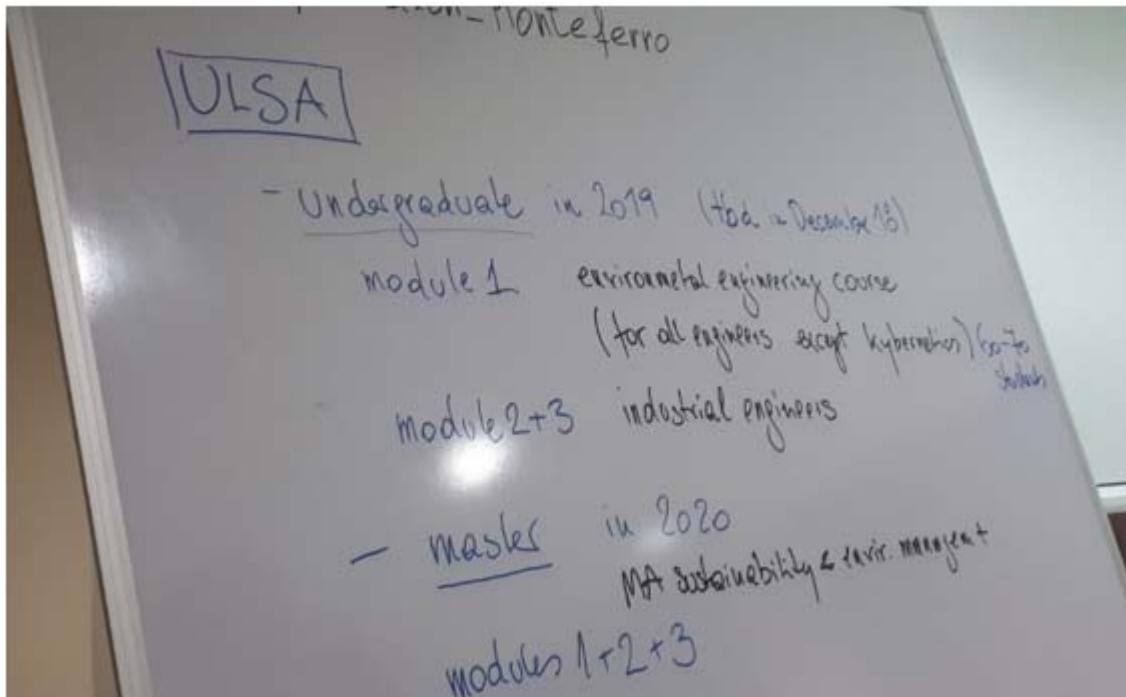 Monteferro
ULSA
- Undergraduate in 2019 (tbd in December 18)
module 1 environmetal engineering course
(for all engineers except kybernetics) 60-70
students
module 2+3 industrial engineers
- master in 2020
MA sustainability & envir. managent
modules 1+2+3